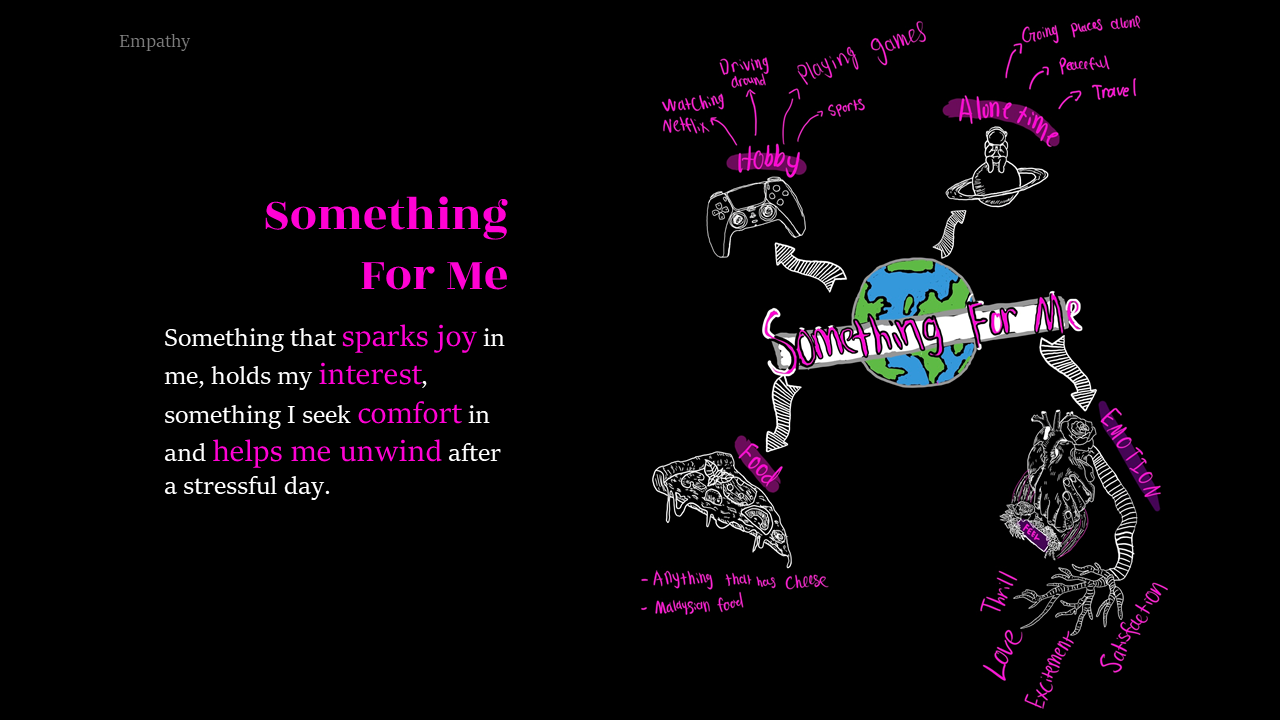 Empathy
Something
For Me
Something that sparks joy in
me, holds my interest,
something I seek comfort in
and helps me unwind after
a stressful day.
Watching
Netflix
Driving
around
Playing games
sports
Hobby
Going places alone
Peaceful
Travel
Alone time
Something For Me
Food
- Anything that has cheese
- Malaysian food
EMOTION
FEEL
Thrill
Love
Excitement
Satisfaction